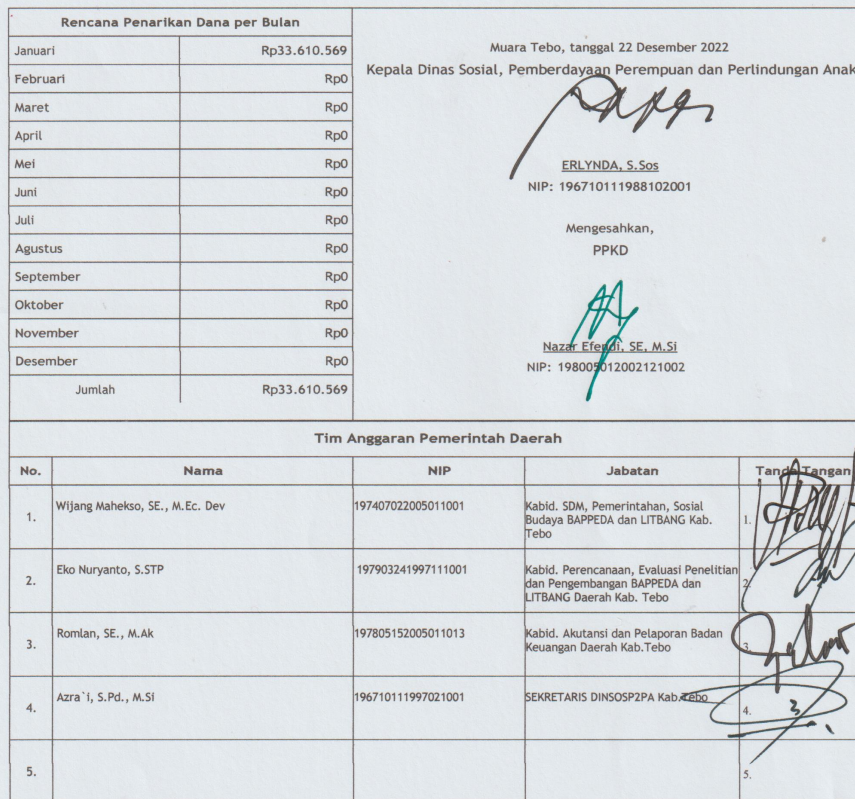 Rencana Penarikan Dana per Bulan
Januari Rp33.610.569
Februari Rp0
Maret Rp0
April Rp0
Mei Rp0
Juni Rp0
Juli Rp0
Agustus Rp0
September Rp0
Oktober Rp0
November Rp0
Desember Rp0
Jumlah Rp33.610.569
Muara Tebo, tanggal 22 Desember 2022
Kepala Dinas Sosial, Pemberdayaan Perempuan dan Perlindungan Anak
ERLYNDA, S.Sos
NIP: 196710111988102001
Mengesahkan,
PPKD
Nazar Efendi, SE, M.Si
NIP: 198005012002121002
Tim Anggaran Pemerintah Daerah
No. Nama NIP Jabatan Tanda Tangan
1. Wijang Mahekso, SE., M.Ec. Dev 197407022005011001 Kabid. SDM, Pemerintahan, Sosial
Budaya BAPPEDA dan LITBANG Kab.
Tebo
1.
2. Eko Nuryanto, S.STP 197903241997111001 Kabid. Perencanaan, Evaluasi Penelitian
dan Pengembangan BAPPEDA dan
LITBANG Daerah Kab. Tebo
2.
3. Romlan, SE., M.Ak 197805152005011013 Kabid. Akutansi dan Pelaporan Badan
Keuangan Daerah Kab.Tebo
3.
4. Azra`i, S.Pd., M.Si 196710111997021001 SEKRETARIS DINSOSP2PA Kab.Tebo
4.
5.
5.